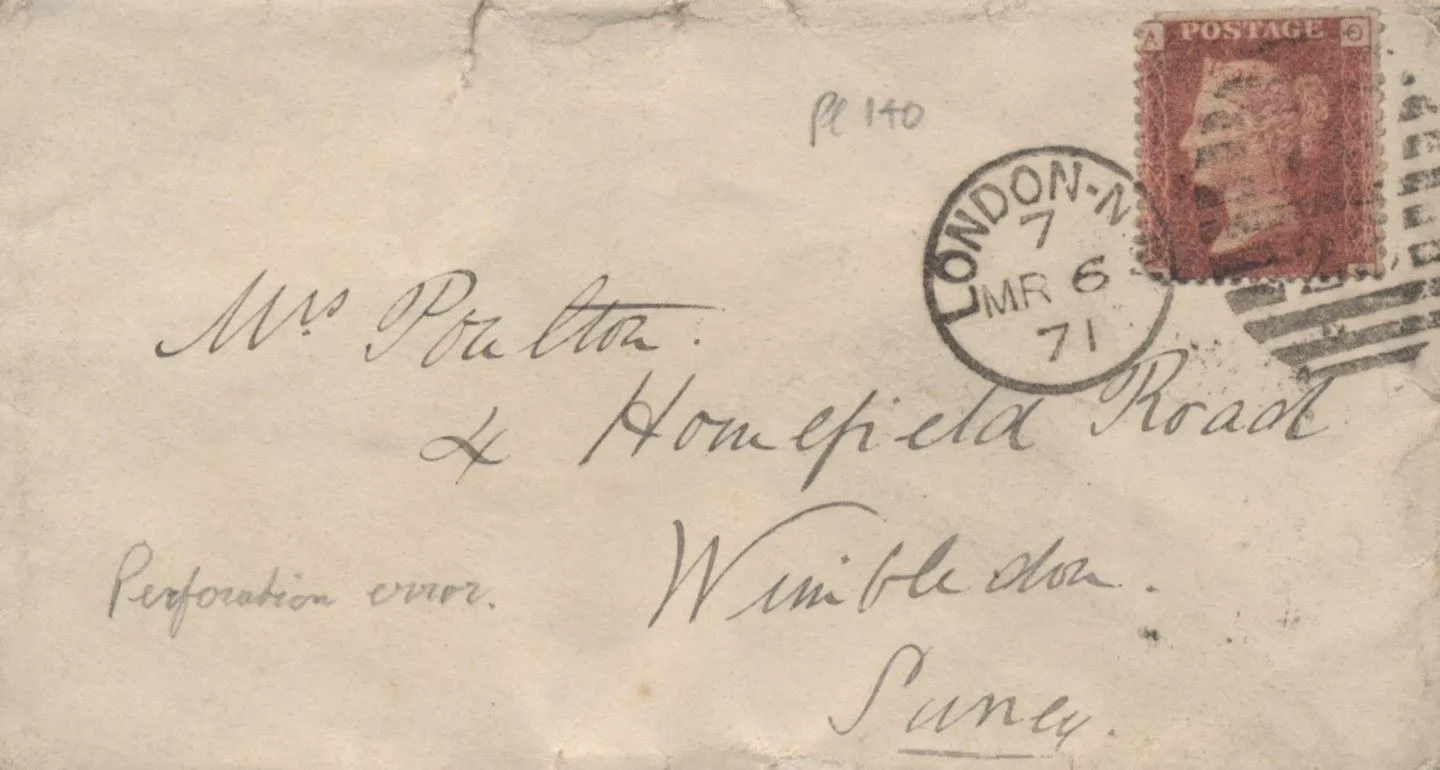 A POSTAGE O
Pl 140
LONDON-N
7
MR 6
71
Mrs Poulton.
4 Homefield Road
Wimbledon.
Perforation error.
Surrey.